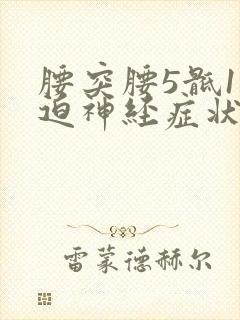 腰突腰5骶1
迫神经症状
雷蒙德赫尔